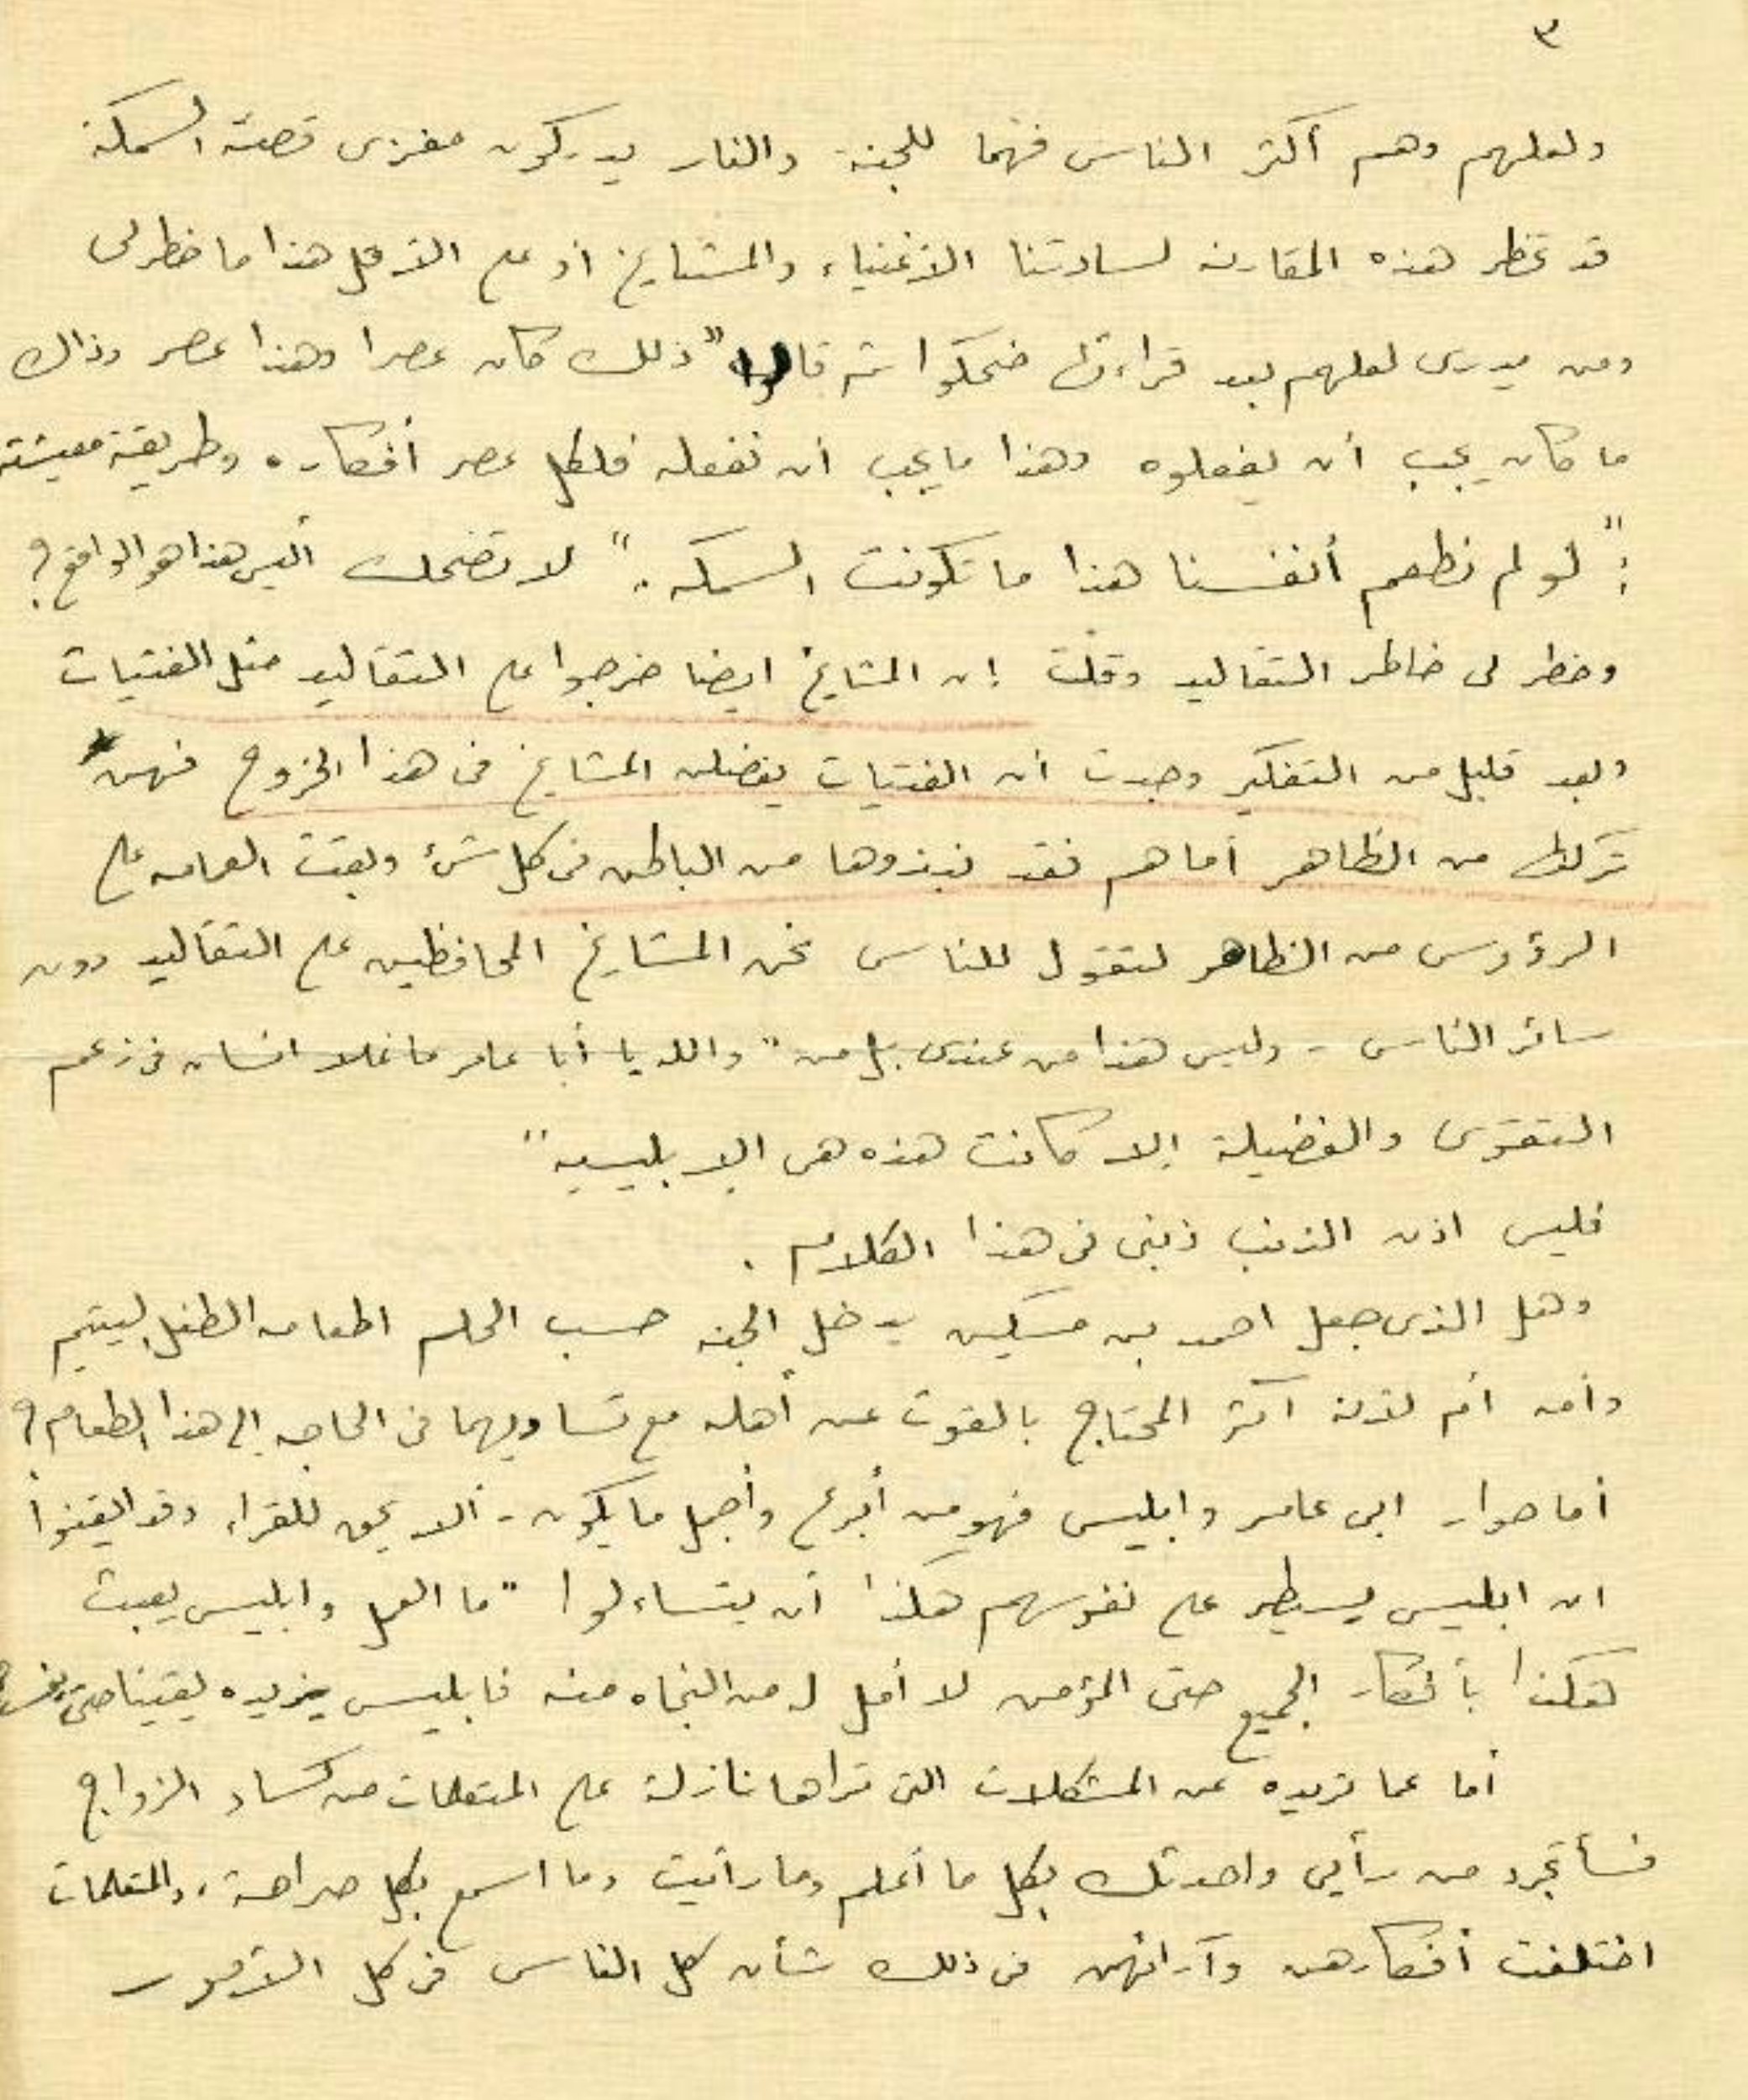 ٣
ولعلهم وهم أكثر الناس فهما للجنة والنار يدركون مغزى قصة السمكة
قد تخطر هذه المقارنه لسادتنا الأغنياء والمشايخ او على الأقل هذا ما خطر لى
ومن يدرى لعلهم بعد قراءتها ضحكوا ثم قالوا "ذلك كان عصرا وهذا عصر وذاك
ما كان يجب أن يفعلوه وهذا ما يجب ان نفعله فلكل عصر أفكاره وطريقة معيشته
: "لو لم نطعم أنفسنا هذا ما تكونت السمكه." لا تضحك أليس هذا هو الواقع؟
وخطر لى خاطر التقاليد وقلت إن المشايخ ايضا خرجوا على التقاليد مثل الفتيات
وبعد قليل من التفكير وجدت ان الفتيات يفضلن المشايخ فى هذا الخروج فهن
تركنها من الظاهر أما هم فقد نبذوها من الباطن فى كل شئ وبقت العمامه على
الرؤوس من الظاهر لتقول للناس نحن المشايخ المحافظين على التقاليد دون
سائر الناس - وليس هذا من عندى بل من "والله يا أبا عامر ما غلا انسان فى زعم
التقوى والفضيلة إلا كانت هذه هى الابليسيه"
فليس اذن الذنب ذنبى فى هذا الكلام .
وهل الذى جعل احمد بن مسكين يدخل الجنه حسب الحلم اطعامه الطفل اليتيم
وأمه أم لأنه آثر المحتاج بالقوت عن أهله مع تساويهما فى الحاجه إلى هذا الطعام؟
أما حوار ابى عامر وابليس فهو من أبرع وأجمل ما يكون - ألا يحق للقراء وقد ايقنوا
ان ابليس يسيطر على نفوسهم هكذا ان يتساءلوا "ما العمل وابليس يعبث
هكذا بأفكار الجميع حتى المؤمن لا أمل له من النجاه منه فابليس يزيده يقينا حتى
أما عما تريده عن المشكلات التى تراها نازلة على المتعلمات من كساد الزواج
فسأتجرد من رأيى واحدثك بكل ما أعلم وما رأيت وما اسمع بكل صراحة، والمتعلمات
اختلفت أفكارهن وآرائهن فى ذلك شأن كل الناس فى كل الأمور